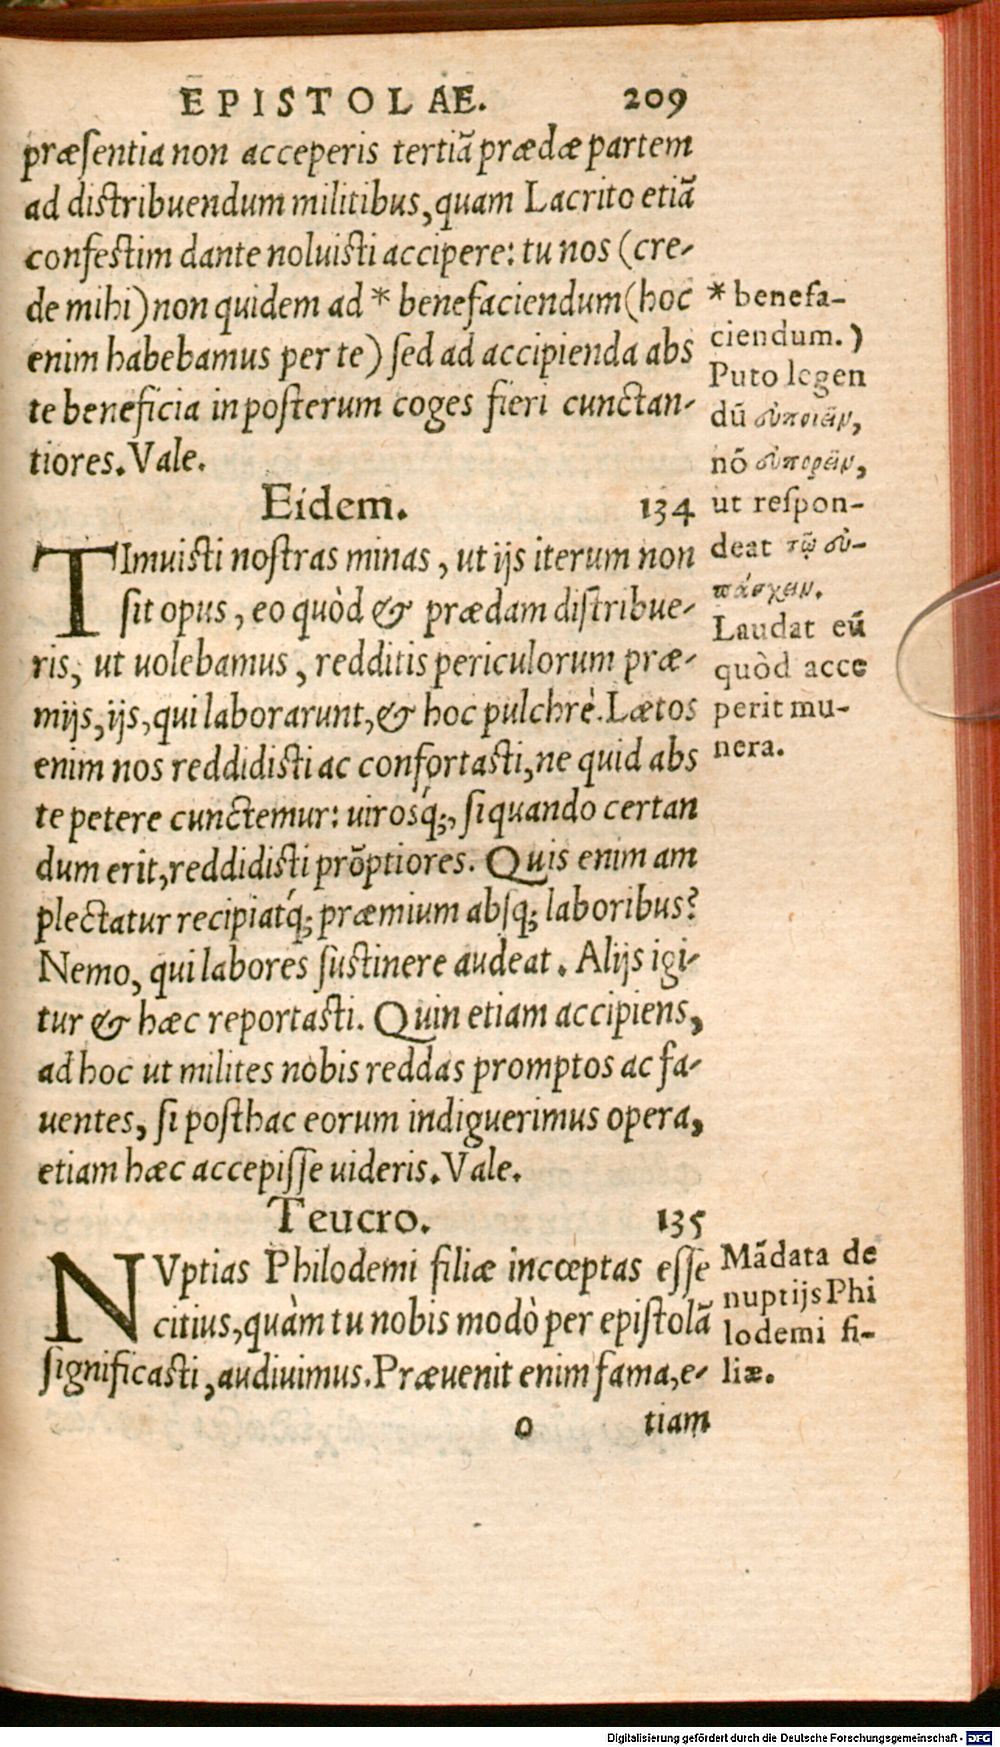 EPISTOLAE. 209
præſentia non acceperis tertiã prædæ partem
ad diſtribuendum militibus, quam Lacrito etiã
confeſtim dante noluiſti accipere: tu nos (cre-
de mihi) non quidem ad * benefaciendum (hoc
enim habebamus per te) ſed ad accipienda abs
te beneficia in poſterum coges fieri cunctan-
tiores. Vale.
* benefa-
ciendum.)
Puto legen
dũ εὐποιεῖν,
nõ εὐπορεῖν,
ut reſpon-
deat τῷ εὐ-
πάσχειν.
Eidem. 134
TImuiſti noſtras minas, ut ijs iterum non
ſit opus, eo quòd & prædam diſtribue-
ris, ut uolebamus, redditis periculorum præ-
mijs, ijs, qui laborarunt, & hoc pulchrè. Lætos
enim nos reddidiſti ac confortaſti, ne quid abs
te petere cunctemur: uirosq́;, ſi quando certan
dum erit, reddidiſti prõptiores. Quis enim am
plectatur recipiatq́; præmium abſq; laboribus?
Nemo, qui labores ſuſtinere audeat. Alijs igi-
tur & hæc reportaſti. Quin etiam accipiens,
ad hoc ut milites nobis reddas promptos ac fa-
uentes, ſi poſthac eorum indiguerimus opera,
etiam hæc accepiſſe uideris. Vale.
Laudat eũ
quòd acce
perit mu-
nera.
Teucro. 135
NVptias Philodemi filiæ incœptas eſſe
citius, quàm tu nobis modò per epiſtolã
ſignificaſti, audiuimus. Præuenit enim fama, e-
Mãdata de
nuptijs Phi
lodemi fi-
liæ.
o tiam
Digitalisierung gefördert durch die Deutsche Forschungsgemeinschaft - DFG